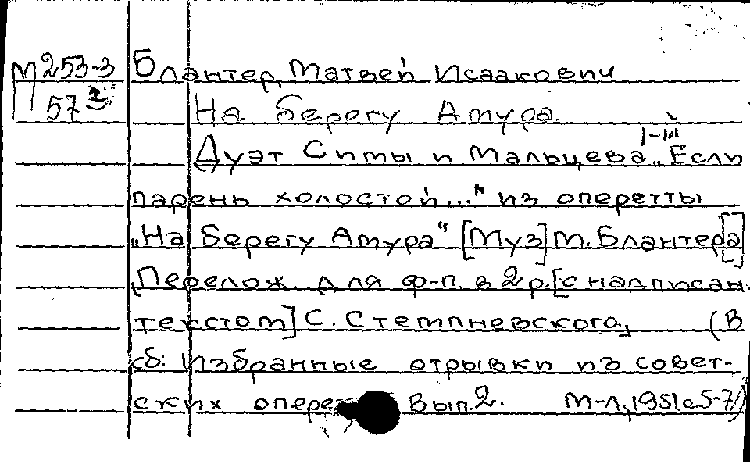 М 253-3 Блантер, Матвей Исаакович
57 На берегу Амура
1-й
Дуэт Симы и Мальцева „Если
парень холостой..." из оперетты
„На берегу Амура" [Муз] М. Блантер[а]
Перелож. для ф-п. в 2 р. [с надписан.
текстом] С. Стемпневского, (В
сб: Избранные отрывки из совет-
ских опере Вып. 2. М-Л, 1951 с 5-7)